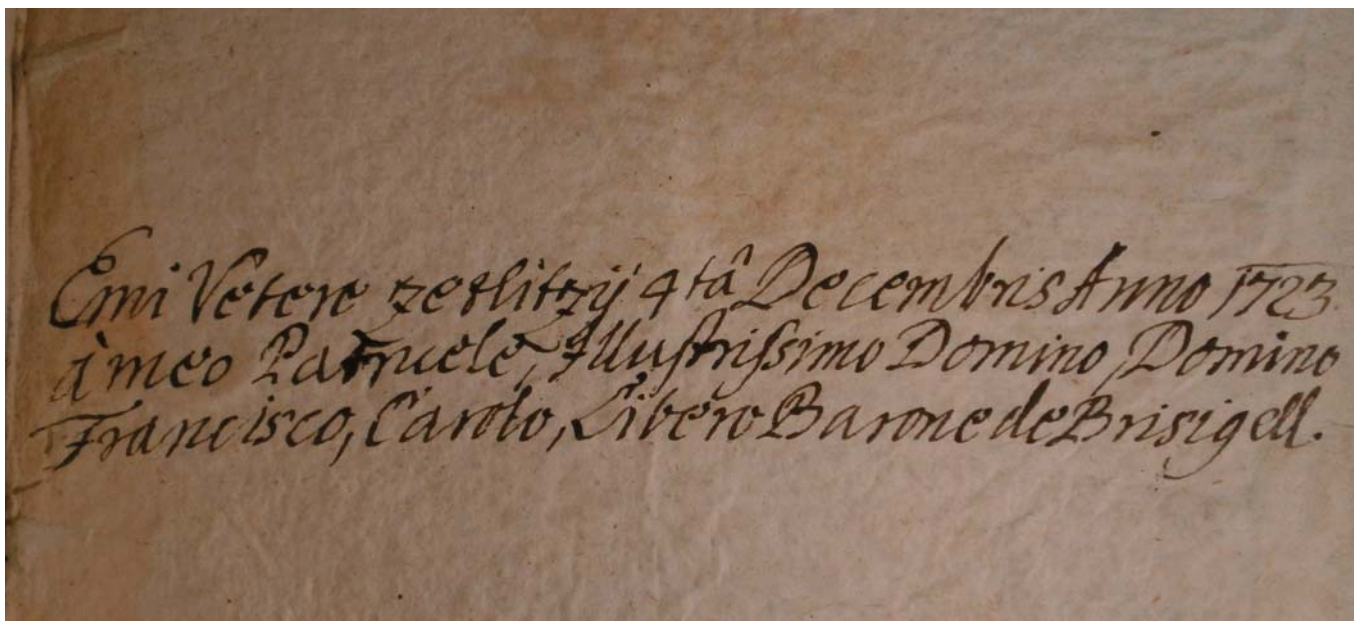 Emi Vetere zetlitzÿ 4tâ Decembris Anno 1723
à meo Patruele, Illustrissimo Domino, Domino
Francisco, Carolo, Libero Barone de Brisigell.